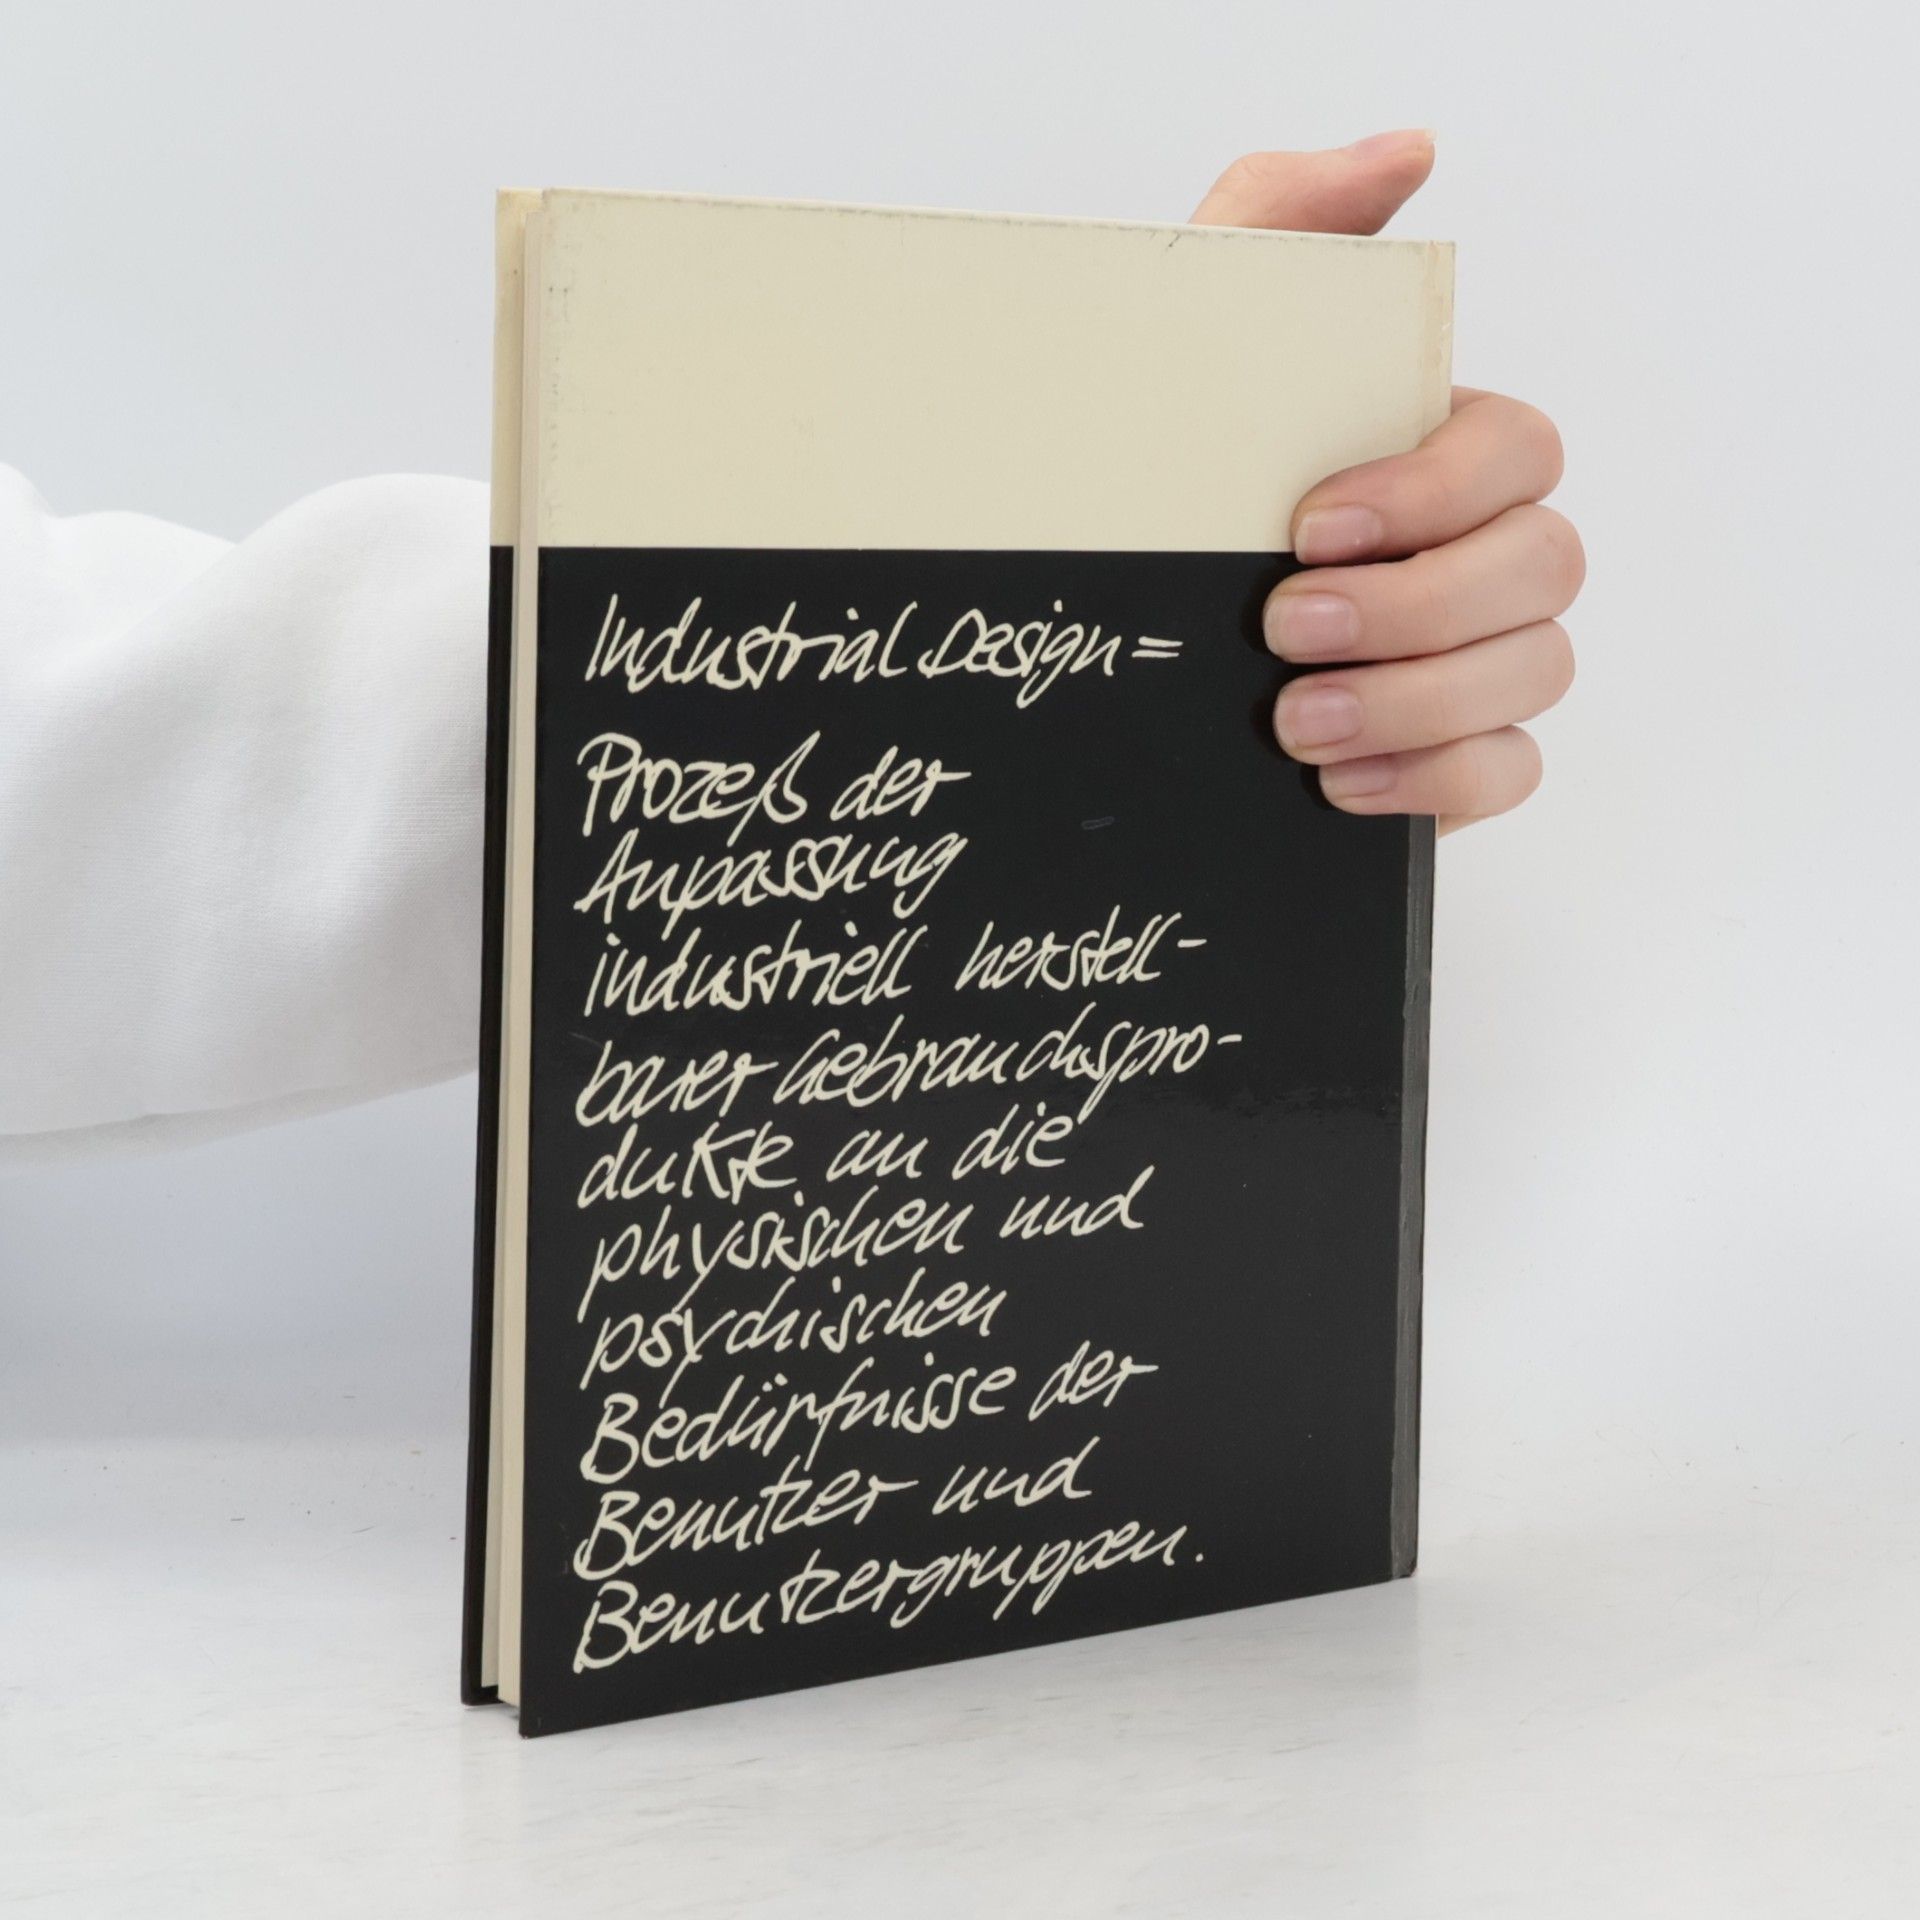 Industrial Design =
Prozeß der
Anpassung
industriell herstell-
barer Gebrauchspro-
dukte an die
physischen und
psychischen
Bedürfnisse der
Benutzer und
Benutzergruppen.